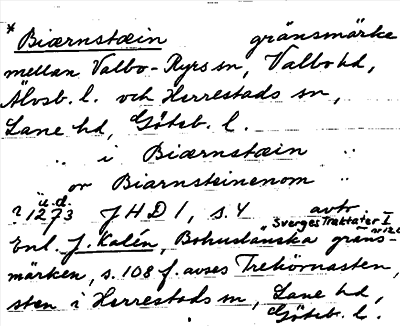 * Biærnstæin gränsmärke
mellan Valbo-Ryrs sn, Valbo hd,
Älvsb. l. och Herrestads sn,
Lane hd, Göteb. l.
" i Biærnstæin "
" or Biarnsteinenom "
u.d.
? 1273 JHD 1, s. 4 avtr.
Sveriges Traktater I
Enl. J. Kalén, Bohuslänska gräns-
märken, s. 108 f. avses Trehörnasten,
sten i Herrestads sn, Lane hd,
Göteb. l.